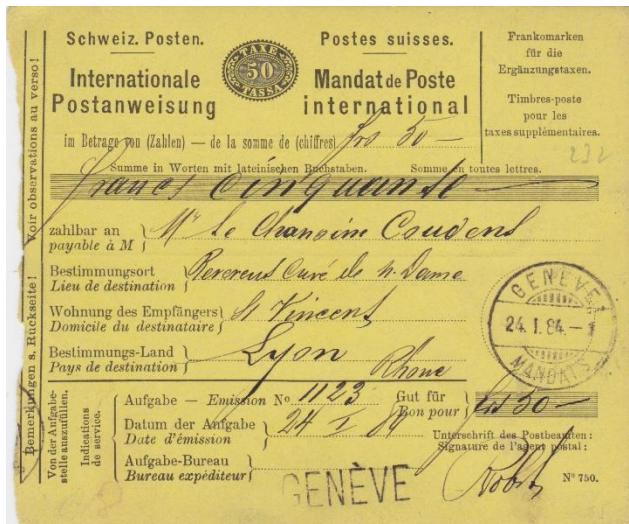 Schweiz. Posten.
Postes suisses.
TAXE
50
TASSA
Internationale
Postanweisung
Mandat de Poste
international
Frankomarken
für die
Ergänzungstaxen.
Timbres-poste
pour les
taxes supplémentaires.
232
im Betrage von (Zahlen) — de la somme de (chiffres) frs 50 —
Summe in Worten mit lateinischen Buchstaben. Somme en toutes lettres.
francs cinquante
zahlbar an
payable à M
Mr Le Chanoine Coudens
Bestimmungsort
Lieu de destination
Révérend Curé de N. Dame
Wohnung des Empfängers
Domicile du destinataire
St Vincent
Bestimmungs-Land
Pays de destination
Lyon
Rhone
GENÈVE
24. I. 84. -
MANDATS
Bemerkungen s. Rückseite! Voir observations au verso!
Von der Aufgabe-
stelle auszufüllen.
Indications
de service.
Aufgabe — Emission No 1123
Gut für
Bon pour
frs 50 —
Datum der Aufgabe
Date d'émission
24 I 84
Unterschrift des Postbeamten:
Signature de l'agent postal:
Aufgabe-Bureau
Bureau expéditeur
GENÈVE
No 750.